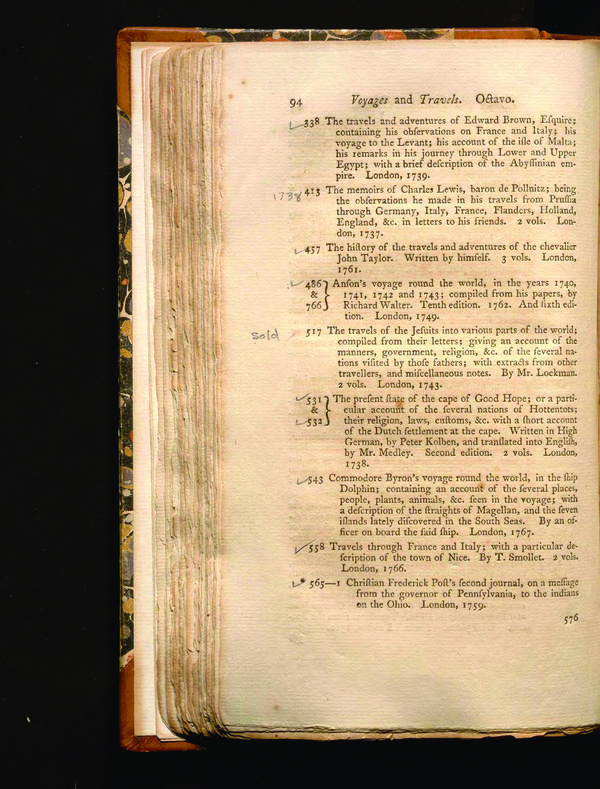 94 Voyages and Travels. Octavo.
338 The travels and adventures of Edward Brown, Eſquire;
containing his obſervations on France and Italy; his
voyage to the Levant; his account of the iſle of Malta;
his remarks in his journey through Lower and Upper
Egypt; with a brief deſcription of the Abyſſinian em-
pire. London, 1739.
1738 413 The memoirs of Charles Lewis, baron de Pollnitz; being
the obſervations he made in his travels from Pruſſia
through Germany, Italy, France, Flanders, Holland,
England, &c. in letters to his friends. 2 vols. Lon-
don, 1737.
457 The hiſtory of the travels and adventures of the chevalier
John Taylor. Written by himſelf. 3 vols. London,
1761.
486 } Anſon's voyage round the world, in the years 1740,
& 1741, 1742 and 1743; compiled from his papers, by
766 Richard Walter. Tenth edition. 1762. And ſixth edi-
tion. London, 1749.
Sold 517 The travels of the Jeſuits into various parts of the world;
compiled from their letters; giving an account of the
manners, government, religion, &c. of the ſeveral na-
tions viſited by thoſe fathers; with extracts from other
travellers, and miſcellaneous notes. By Mr. Lockman.
2 vols. London, 1743.
531 } The preſent ſtate of the cape of Good Hope; or a parti-
& cular account of the ſeveral nations of Hottentots;
532 their religion, laws, cuſtoms, &c. with a ſhort account
of the Dutch ſettlement at the cape. Written in High
German, by Peter Kolben, and tranſlated into Engliſh,
by Mr. Medley. Second edition. 2 vols. London,
1738.
543 Commodore Byron's voyage round the world, in the ſhip
Dolphin; containing an account of the ſeveral places,
people, plants, animals, &c. ſeen in the voyage; with
a deſcription of the ſtraights of Magellan, and the ſeven
iſlands lately diſcovered in the South Seas. By an of-
ficer on board the ſaid ſhip. London, 1767.
558 Travels through France and Italy; with a particular de-
ſcription of the town of Nice. By T. Smollet. 2 vols.
London, 1766.
* 565—1 Chriſtian Frederick Poſt's ſecond journal, on a meſſage
from the governor of Pennſylvania, to the indians
on the Ohio. London, 1759.
576